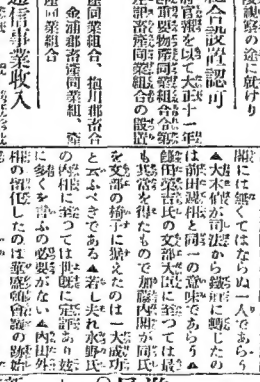 後視察の途に就けり
組合設置認可
官報を以て大正十一年
重要物産同業組合
畜產同業組合の設置
畜産同業組合、抱川郡畜
金浦郡畜產同業組合、
同業組合
遞信事業收入
閣には無くてはならぬ一人であらう
▲大木伯が司法から鐵道に轉じたの
は前田遞相と同一の意味であらう▲
鎌田榮吉氏の文部大臣に至つては最
も其當を得たもので加藤内閣が同氏
を文部の椅子に据えたのは一大成功
と云ふべきである▲若し夫れ水野氏
の内相に至つては世既に定評あり玆
に多くを言ふの必要がない▲内田外
相の留任したのは華盛頓會議の跡始